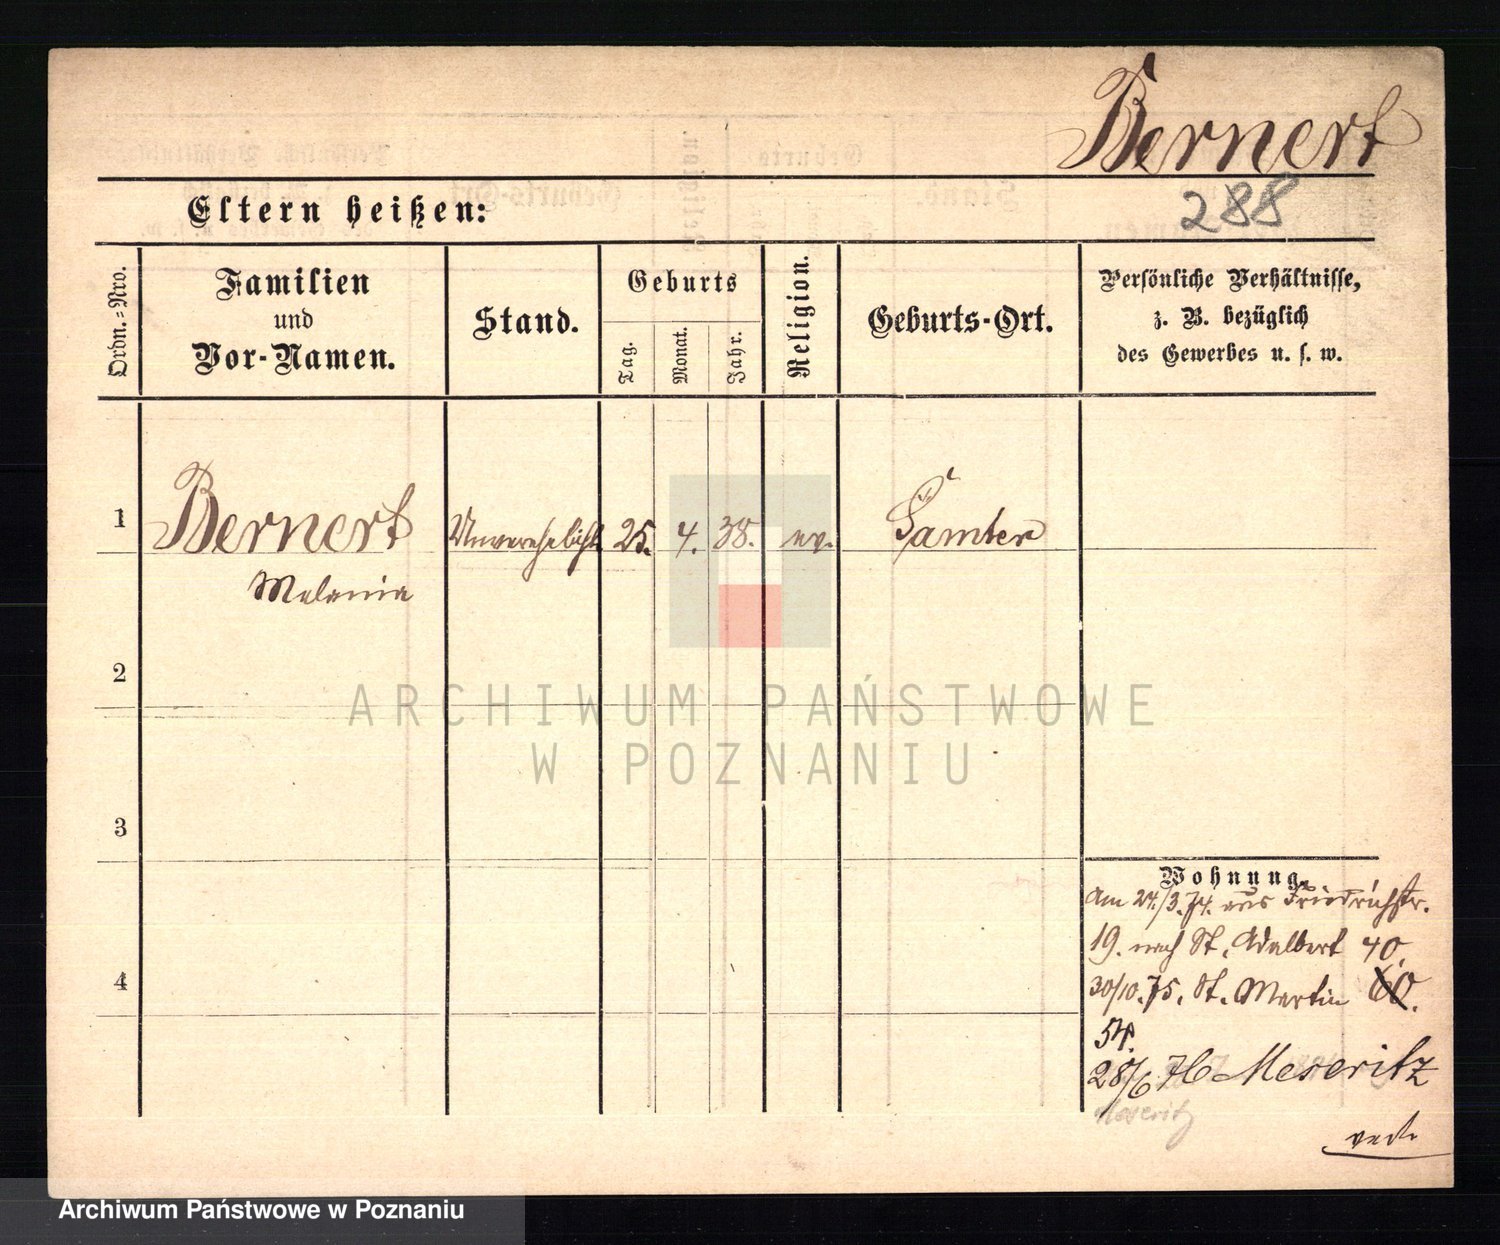 Bernert
288
Eltern heißen:
Ordn.-Nro.
Familien
und
Vor-Namen.
Stand.
Geburts
Tag.
Monat.
Jahr.
Religion.
Geburts-Ort.
Persönliche Verhältnisse,
z. B. bezüglich
des Gewerbes u. s. w.
1 Bernert Unverehelicht 25. 4. 38. ev. Samter
Melania
2
3
4
Wohnung.
Am 24./3.74. aus Friedrichstr.
19. nach St. Adalbert 40.
30/10.75. St. Martin 60.
54.
28/6 76 Meseritz
Meseritz
ARCHIWUM PAŃSTWOWE
W POZNANIU
Archiwum Państwowe w Poznaniu